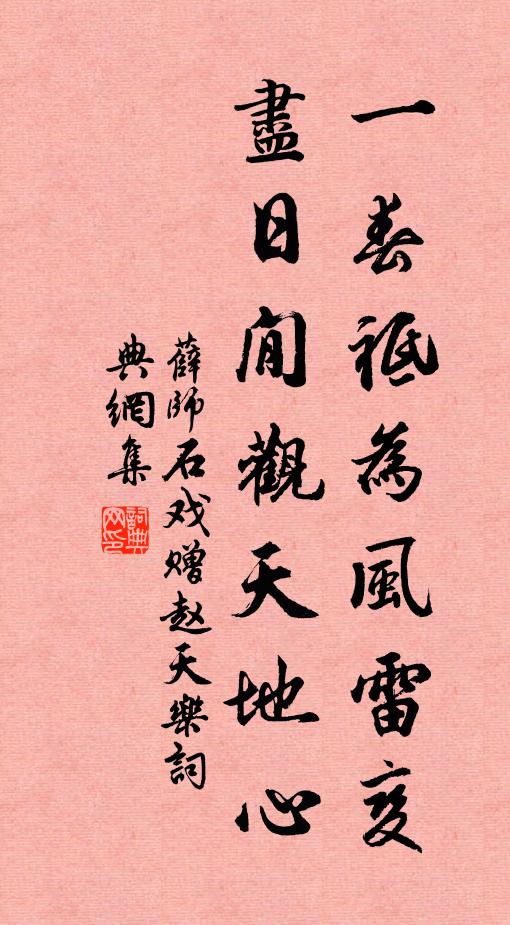 一春祗為風雷变
盡日閒觀天地心
薛師石戏赠赵天樂詞
典網集
詞典网印